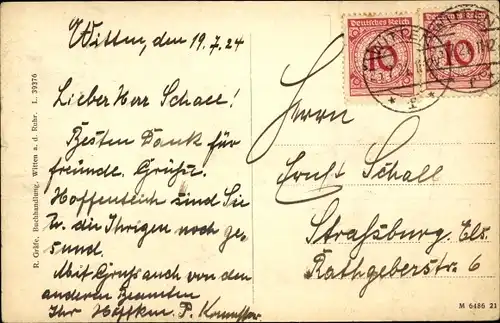 Witten, den 19.7.24
Lieber Herr Schall!
Besten Dank für
freundl. Grüße.
Hoffentlich sind Sie
u. die Ihrigen noch ge-
sund.
Mit Gruß auch von den
anderen Beamten
Ihr
P.
R. Gräfe, Buchhandlung, Witten a. d. Ruhr. L. 39376
Deutsches Reich
10
Deutsches Reich
10
WITTEN
Herrn
Ernst Schall
Straßburg Els.
Rathgeberstr. 6
M 6486 21